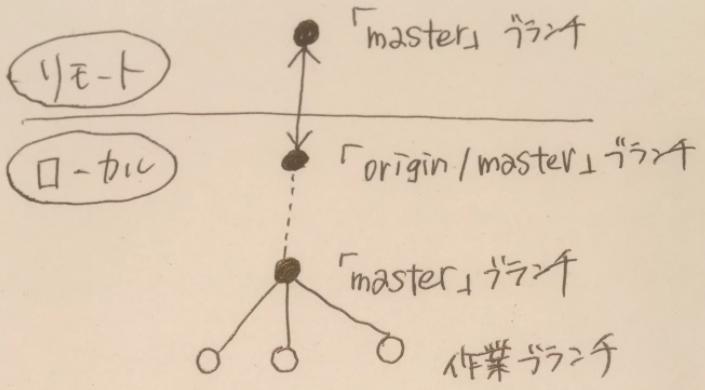 リモート
「master」ブランチ
ローカル
「origin/master」ブランチ
「master」ブランチ
作業ブランチ